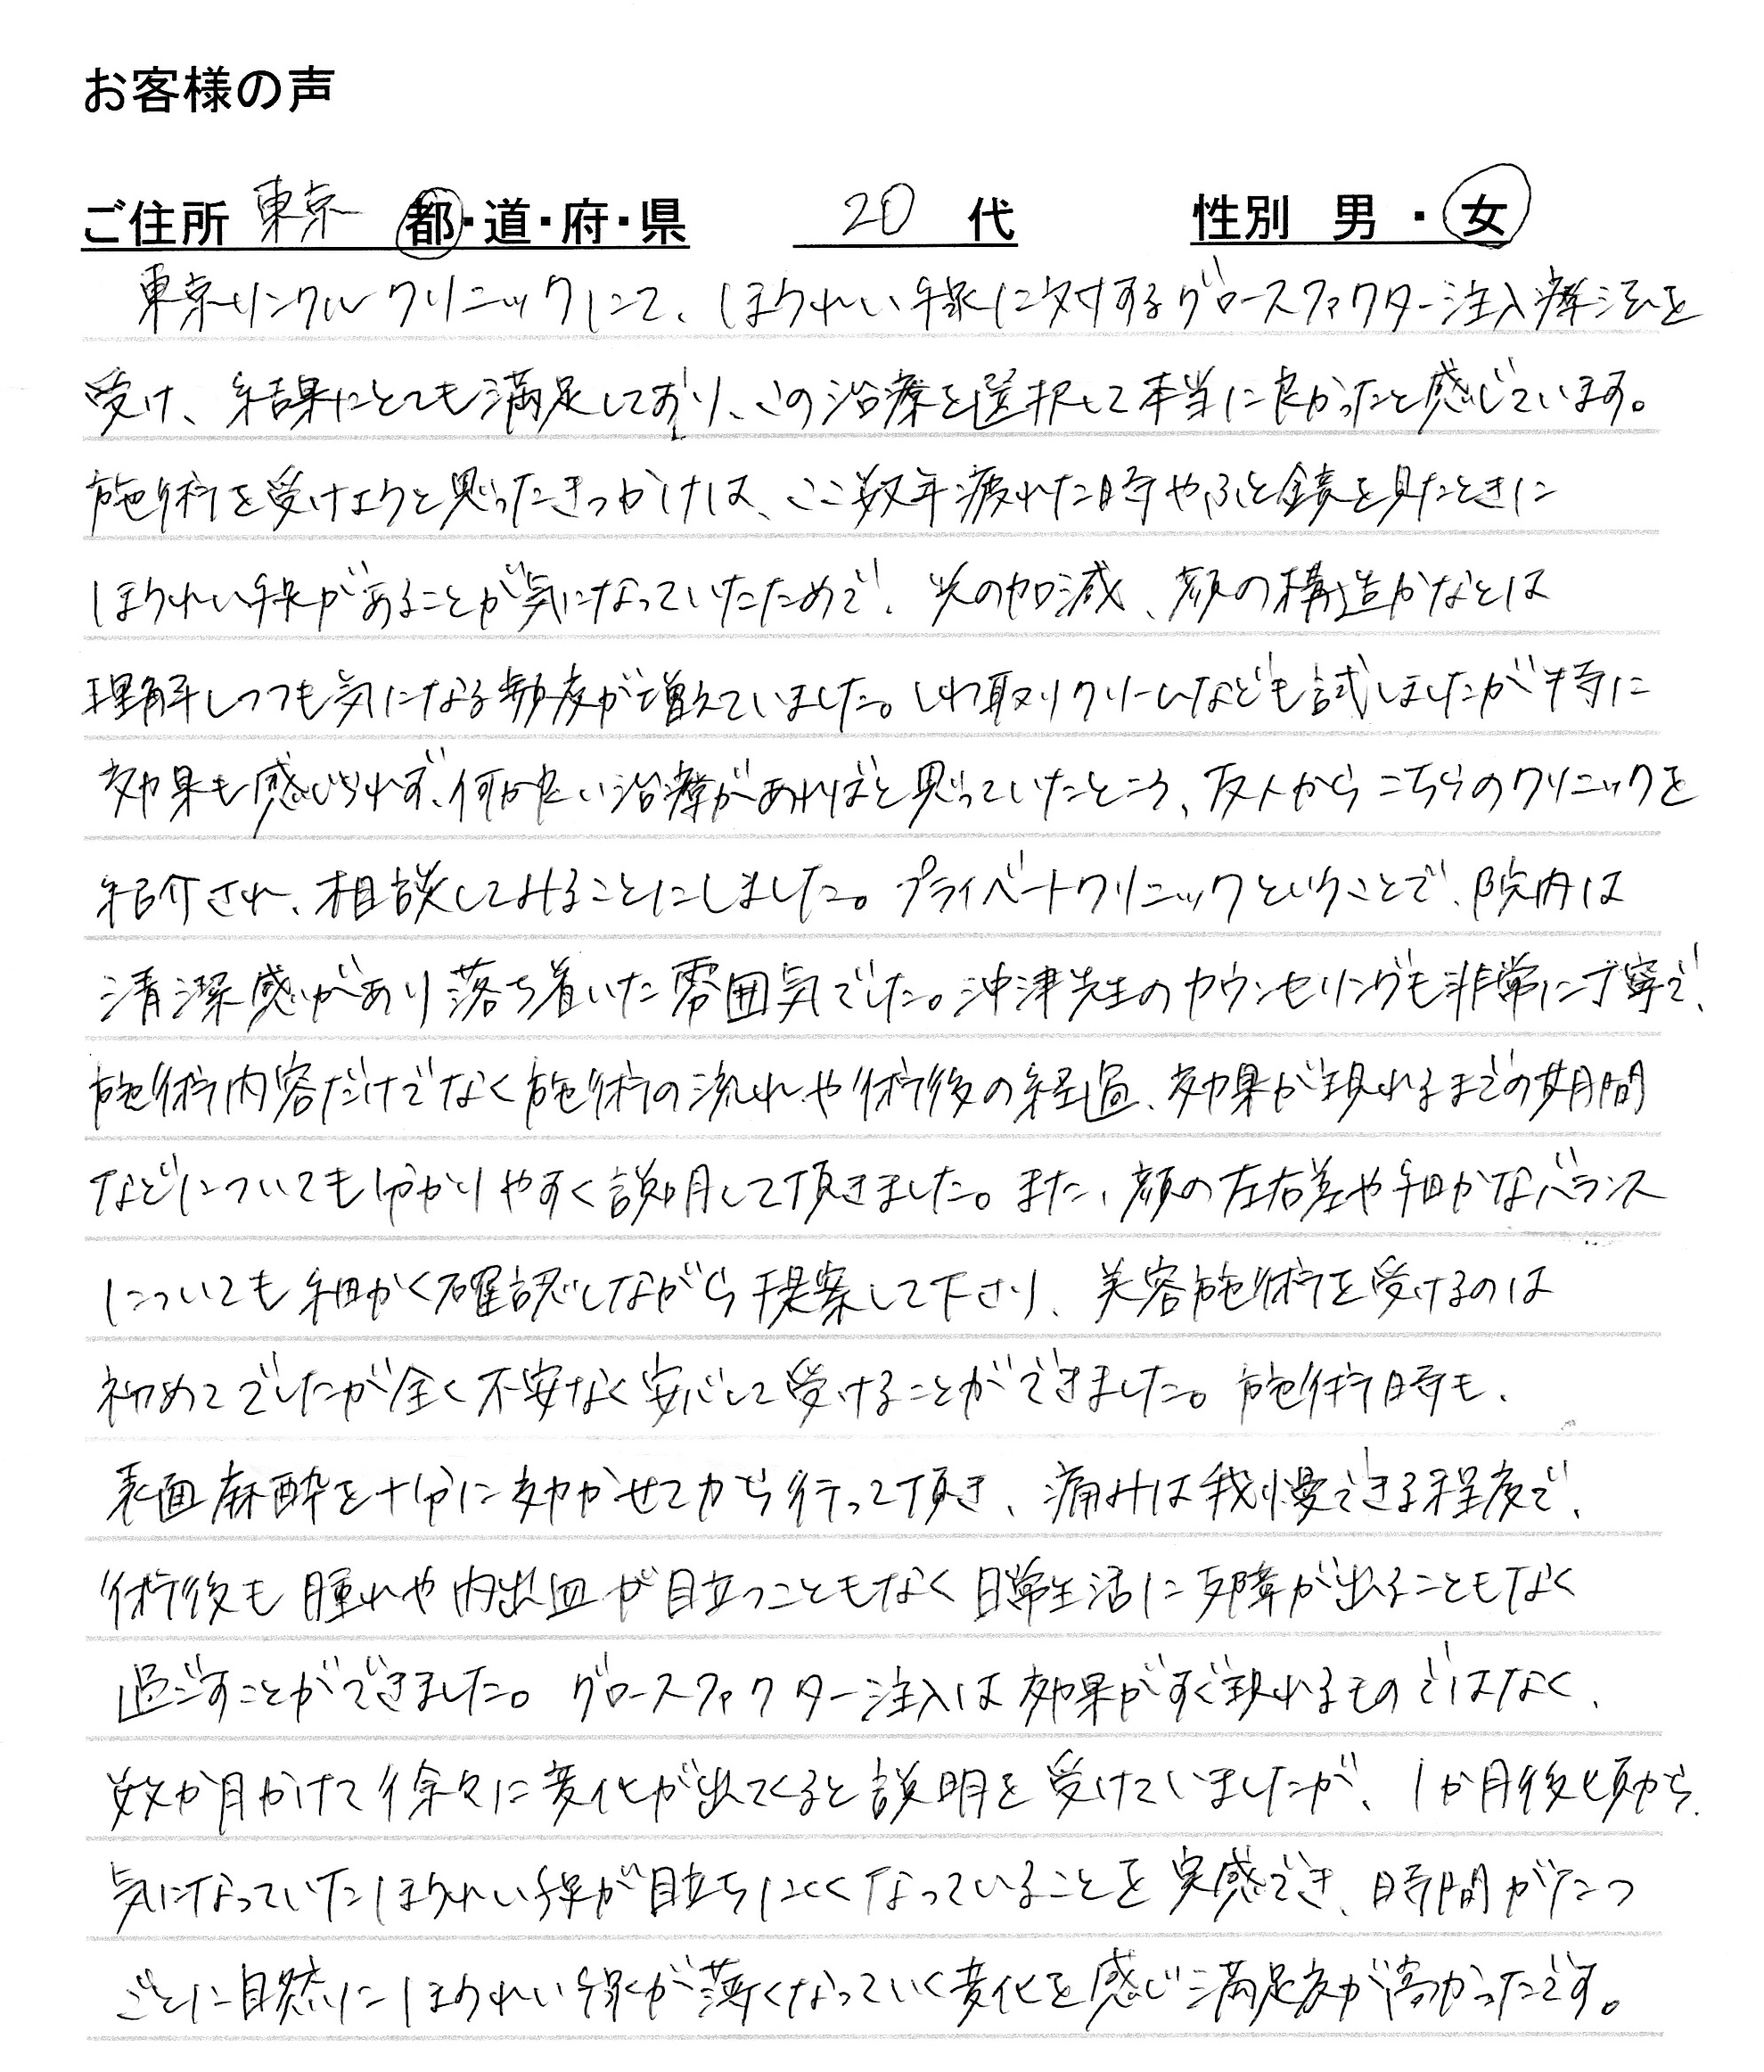 お客様の声
ご住所 東京 都・道・府・県 20 代 性別 男・女
東京リンクルクリニックにて、ほうれい線に対するグロースファクター注入療法を
受け、結果にとても満足しており、この治療を選択して本当に良かったと感じています。
施術を受けようと思ったきっかけは、ここ数年疲れた時やふと鏡を見たときに
ほうれい線があることが気になっていたためで、光の加減、顔の構造かなとは
理解しつつも気になる頻度が増えていました。しわ取りクリームなども試しましたが特に
効果も感じられず、何か良い治療があればと思っていたところ、友人からこちらのクリニックを
紹介され、相談してみることにしました。プライベートクリニックということで、院内は
清潔感があり落ち着いた雰囲気でした。沖津先生のカウンセリングも非常に丁寧で、
施術内容だけでなく施術の流れや術後の経過、効果が現れるまでの期間
などについても分かりやすく説明して頂きました。また、顔の左右差や細かなバランス
についても細かく確認しながら提案して下さり、美容施術を受けるのは
初めてでしたが全く不安なく安心して受けることができました。施術時も、
表面麻酔を十分に効かせてから行って頂き、痛みは我慢できる程度で、
術後も腫れや内出血が目立つこともなく日常生活に支障が出ることもなく
過ごすことができました。グロースファクター注入は効果がすぐ現れるものではなく、
数か月かけて徐々に変化が出てくると説明を受けていましたが、1か月後頃から
気になっていたほうれい線が目立ちにくくなっていることを実感でき、時間がたつ
ごとに自然にほうれい線が薄くなっていく変化を感じ満足度が高かったです。